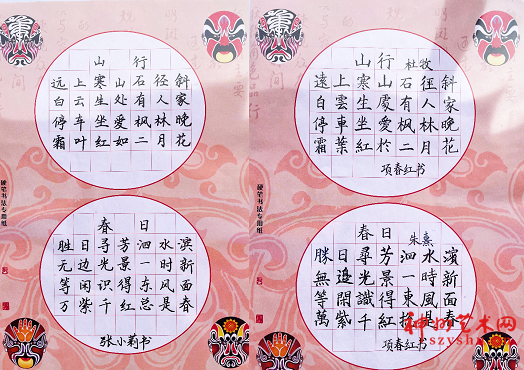 山行
远上寒山石径斜
白云生处有人家
停车坐爱枫林晚
霜叶红如二月花
山行
杜牧
遠上寒山石径斜
白雲生處有人家
停車坐愛枫林晚
霜葉紅於二月花
项春红书
硬笔书法专用纸
硬笔书法专用纸
春日
胜日寻芳泗水滨
无边光景一时新
等闲识得东风面
万紫千红总是春
张小莉书
春日
朱熹
勝日尋芳泗水濱
無邊光景一時新
等閒識得東風面
萬紫千紅是春
项春红书
神州艺术网